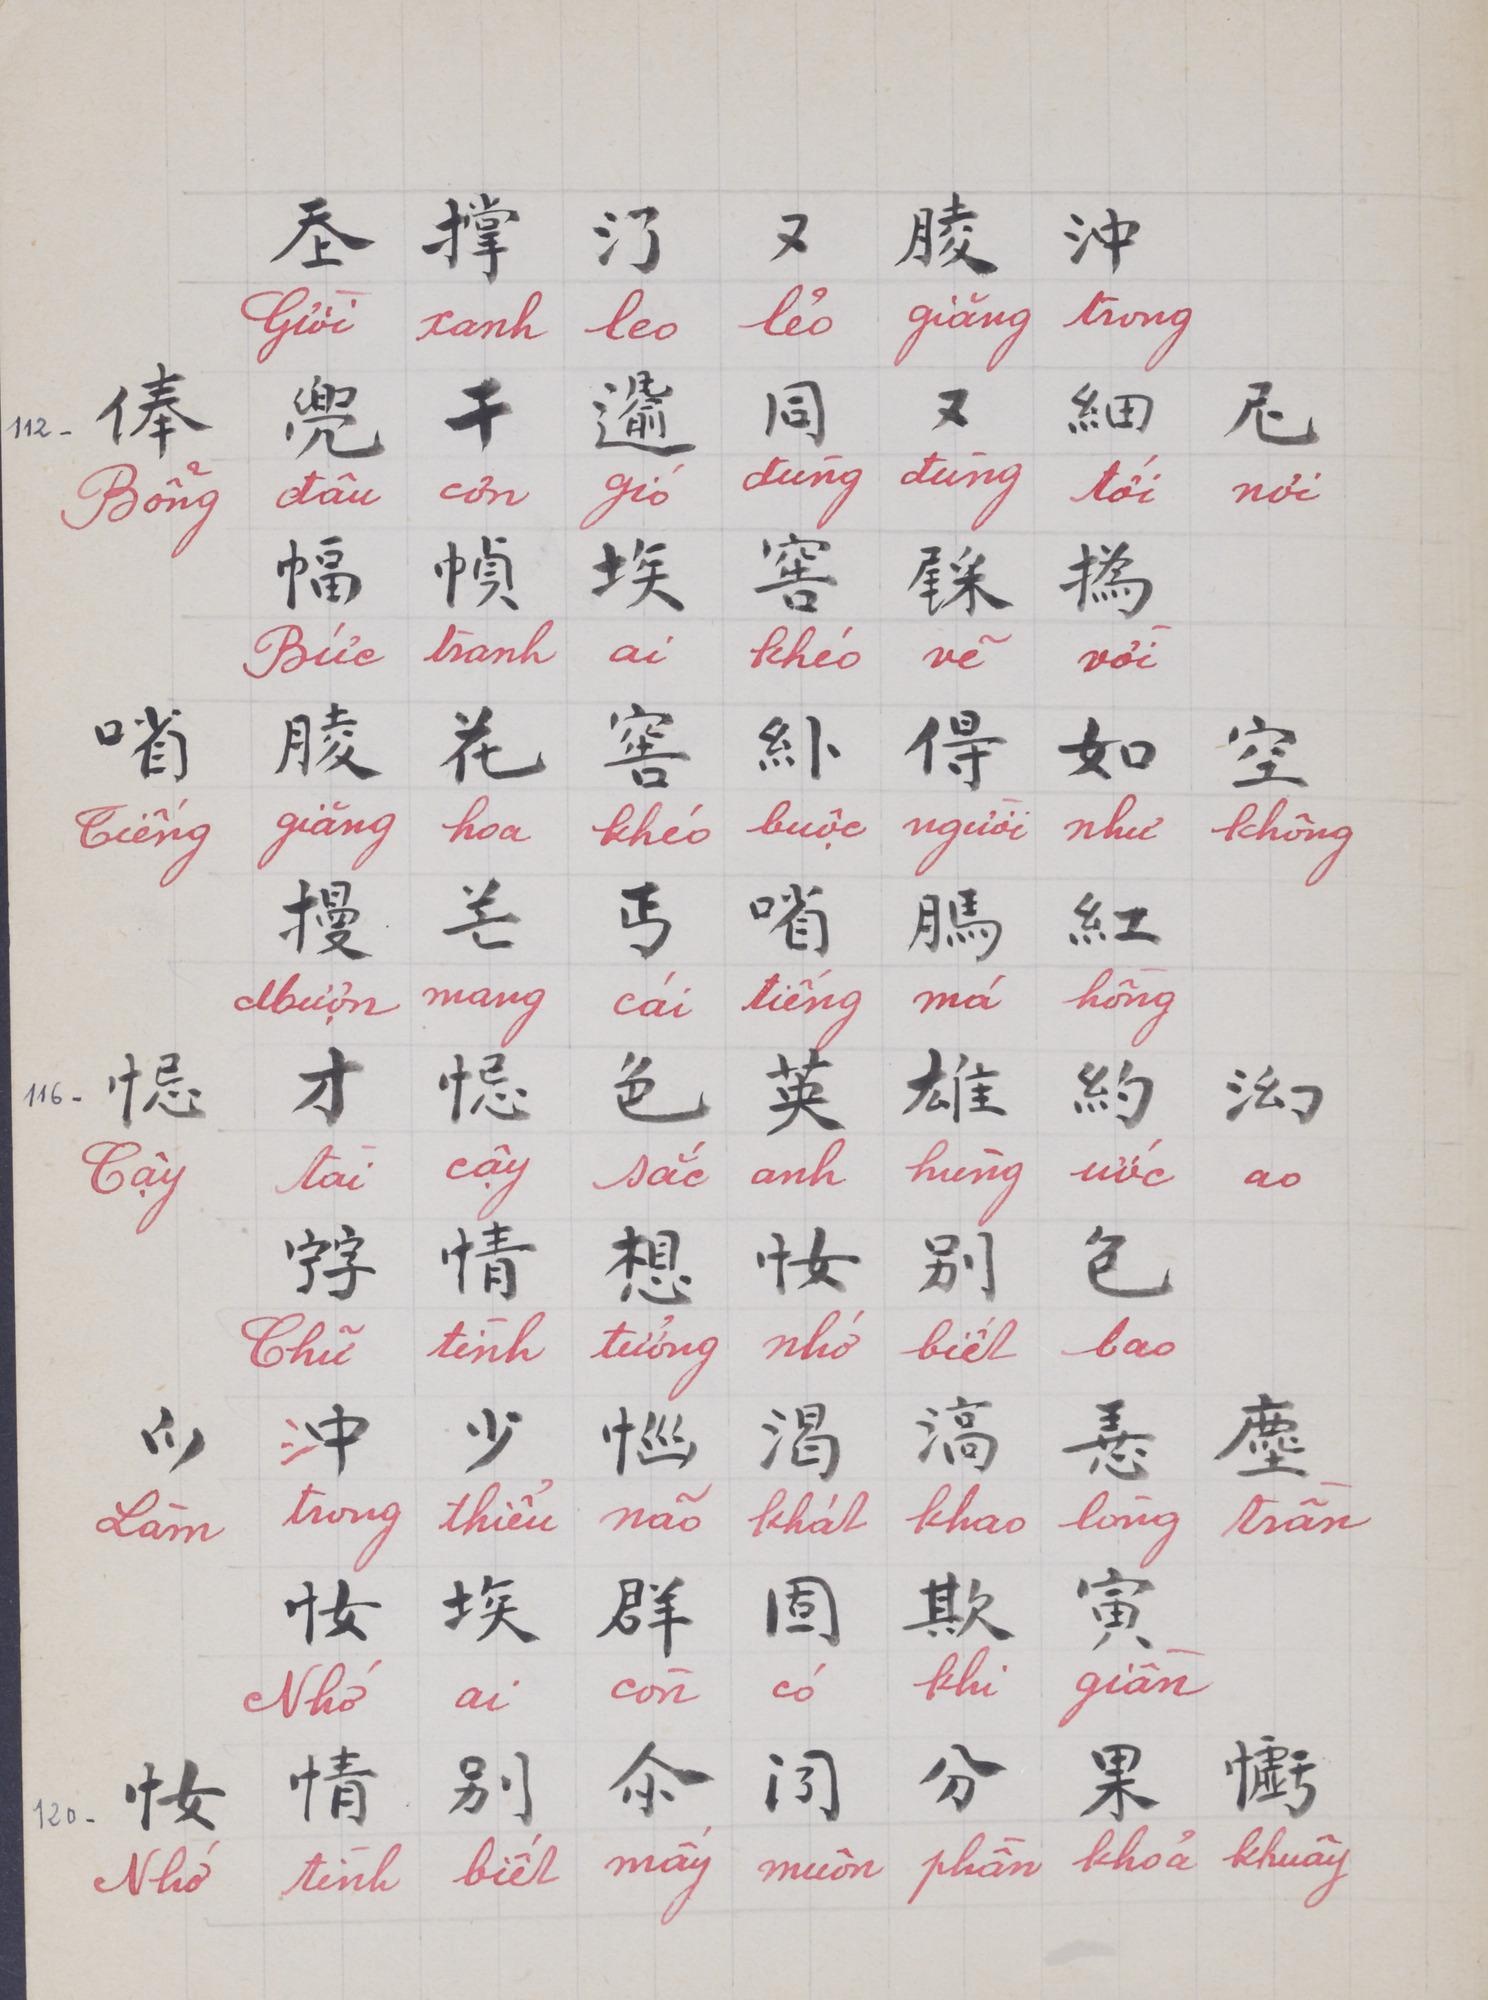 𡗶 撑 汈 又 𦝄 沖
Giời xanh leo lẻo giăng trong
112- 俸 兜 干 𨔍 同 又 細 尼
Bỗng đâu cơn gió đùng đùng tới nơi
幅 幀 埃 窖 𦘧 撝
Bức tranh ai khéo vẽ vời
㗂 𦝄 花 窖 紨 㝵 如 空
Tiếng giăng hoa khéo buộc người như không
擾 芒 丐 㗂 𦟐 紅
Mượn mang cái tiếng má hồng
116- 㤅 才 㤅 色 英 雄 約 泑
Cậy tài cậy sắc anh hùng ước ao
𡨸 情 想 𢘾 別 包
Chữ tình tưởng nhớ biết bao
𫜵 沖 少 惱 渴 滈 𢚸 塵
Làm trong thiểu não khát khao lòng trần
𢘾 埃 群 固 欺 寅
Nhớ ai còn có khi giần
120- 𢘾 情 別 尒 闁 分 果 㦛
Nhớ tình biết mấy muôn phần khoả khuây